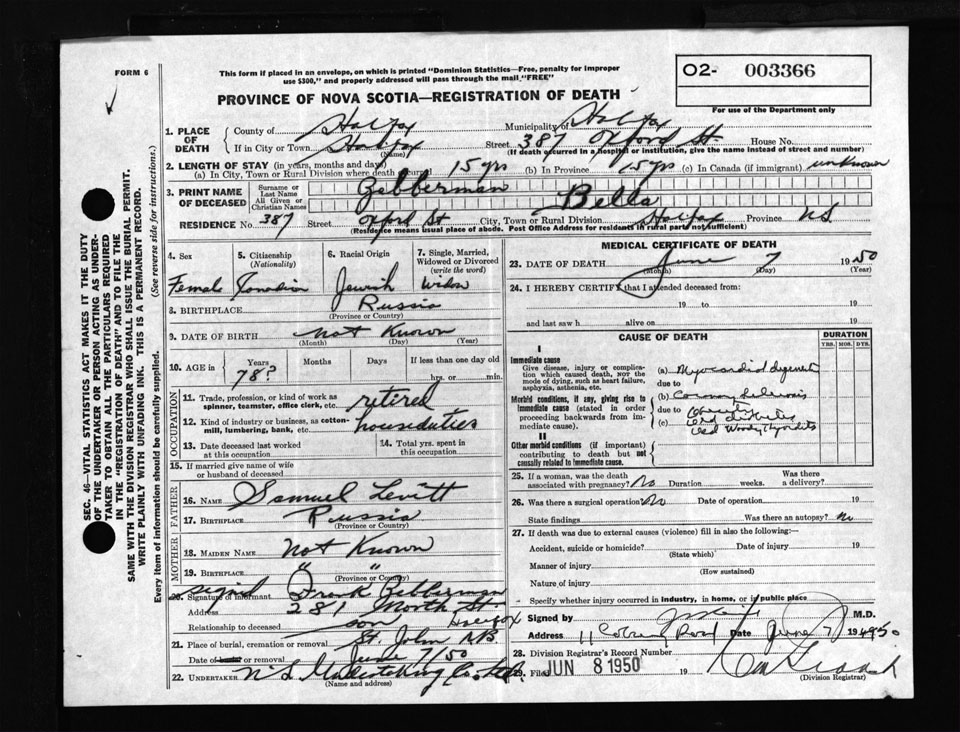 FORM 6
This form if placed in an envelope, on which is printed "Dominion Statistics—Free, penalty for improper
use $300," and properly addressed will pass through the mail "FREE"
O2- 003366
For use of the Department only
PROVINCE OF NOVA SCOTIA—REGISTRATION OF DEATH
1. PLACE OF DEATH
County of Halifax Municipality of Halifax
If in City or Town Halifax Street 387 Oxford St. House No.
(Name) (If death occurred in a hospital or institution, give the name instead of street and number)
2. LENGTH OF STAY (in years, months and days)
(a) In City, Town or Rural Division where death occurred 15 yrs (b) In Province 15 yrs (c) In Canada (if immigrant) unknown
3. PRINT NAME OF DECEASED
Surname or Last Name Zebberman
All Given or Christian Names Bella
RESIDENCE No. 387 Street Oxford St City, Town or Rural Division Halifax Province N.S.
(Residence means usual place of abode. Post Office Address for residents in rural parts not sufficient)
4. Sex Female
5. Citizenship (Nationality) Canadian
6. Racial Origin Jewish
7. Single, Married, Widowed or Divorced (write the word) Widow
8. BIRTHPLACE Russia
(Province or Country)
9. DATE OF BIRTH not Known
(Month) (Day) (Year)
10. AGE in Years 78? Months Days If less than one day old
hrs. or min.
OCCUPATION
11. Trade, profession, or kind of work as spinner, teamster, office clerk, etc. retired
12. Kind of industry or business, as cotton-mill, lumbering, bank, etc. houseduties
13. Date deceased last worked at this occupation
14. Total yrs. spent in this occupation
15. If married give name of wife or husband of deceased
FATHER
16. NAME Samuel Levitt
17. BIRTHPLACE Russia
(Province or Country)
MOTHER
18. MAIDEN NAME Not Known
19. BIRTHPLACE " "
(Province or Country)
signed
20. Signature of informant Frank Zebberman
Address 281 North St. Halifax
Relationship to deceased son
21. Place of burial, cremation or removal St. John N.B.
Date of burial or removal June 7/50
22. UNDERTAKER N.S. Undertaking Co. Ltd.
(Name and address)
MEDICAL CERTIFICATE OF DEATH
23. DATE OF DEATH June 7 1950
(Month) (Day) (Year)
24. I HEREBY CERTIFY that I attended deceased from:
19 to 19
and last saw h alive on 19
CAUSE OF DEATH
DURATION
YRS. MOS. DYS.
I
Immediate cause
Give disease, injury or complication which caused death, NOT the mode of dying, such as heart failure, asphyxia, asthenia, etc.
(a) Myocardial
due to
Morbid conditions, if any, giving rise to immediate cause (stated in order proceeding backwards from immediate cause).
(b) Coronary Sclerosis
due to
(c)
II
Other morbid conditions (if important) contributing to death but not causally related to immediate cause.
25. If a woman, was the death associated with pregnancy? No Duration weeks. Was there a delivery?
26. Was there a surgical operation? No Date of operation 19
State findings Was there an autopsy? No
27. If death was due to external causes (violence) fill in also the following:—
Accident, suicide or homicide? Date of injury 19
(State which)
Manner of injury
(How sustained)
Nature of injury
Specify whether injury occurred in industry, in home, or in public place
Signed by M.D.
Address Road Date June 7 1950
28. Division Registrar's Record Number
29. Filed JUN 8 1950 19
(Division Registrar)
SEC. 46—VITAL STATISTICS ACT MAKES IT THE DUTY
OF THE UNDERTAKER OR PERSON ACTING AS UNDER-
TAKER TO OBTAIN ALL THE PARTICULARS REQUIRED
IN THE "REGISTRATION OF DEATH" AND TO FILE THE
SAME WITH THE DIVISION REGISTRAR WHO SHALL ISSUE THE BURIAL PERMIT.
WRITE PLAINLY WITH UNFADING INK. THIS IS A PERMANENT RECORD.
Every item of information should be carefully supplied. (See reverse side for instructions.)